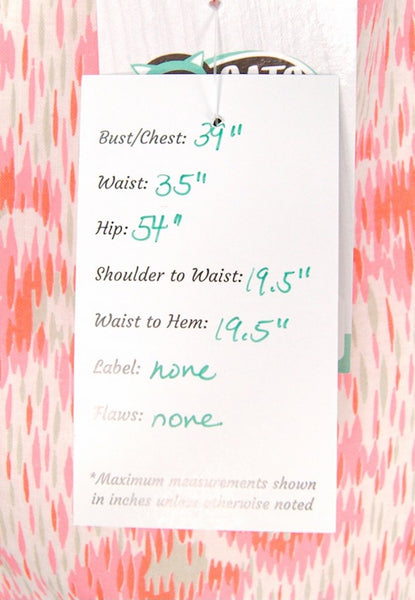 CATS
Bust/Chest: 39"
Waist: 35"
Hip: 54"
Shoulder to Waist: 19.5"
Waist to Hem: 19.5"
Label: none
Flaws: none
*Maximum measurements shown
in inches unless otherwise noted